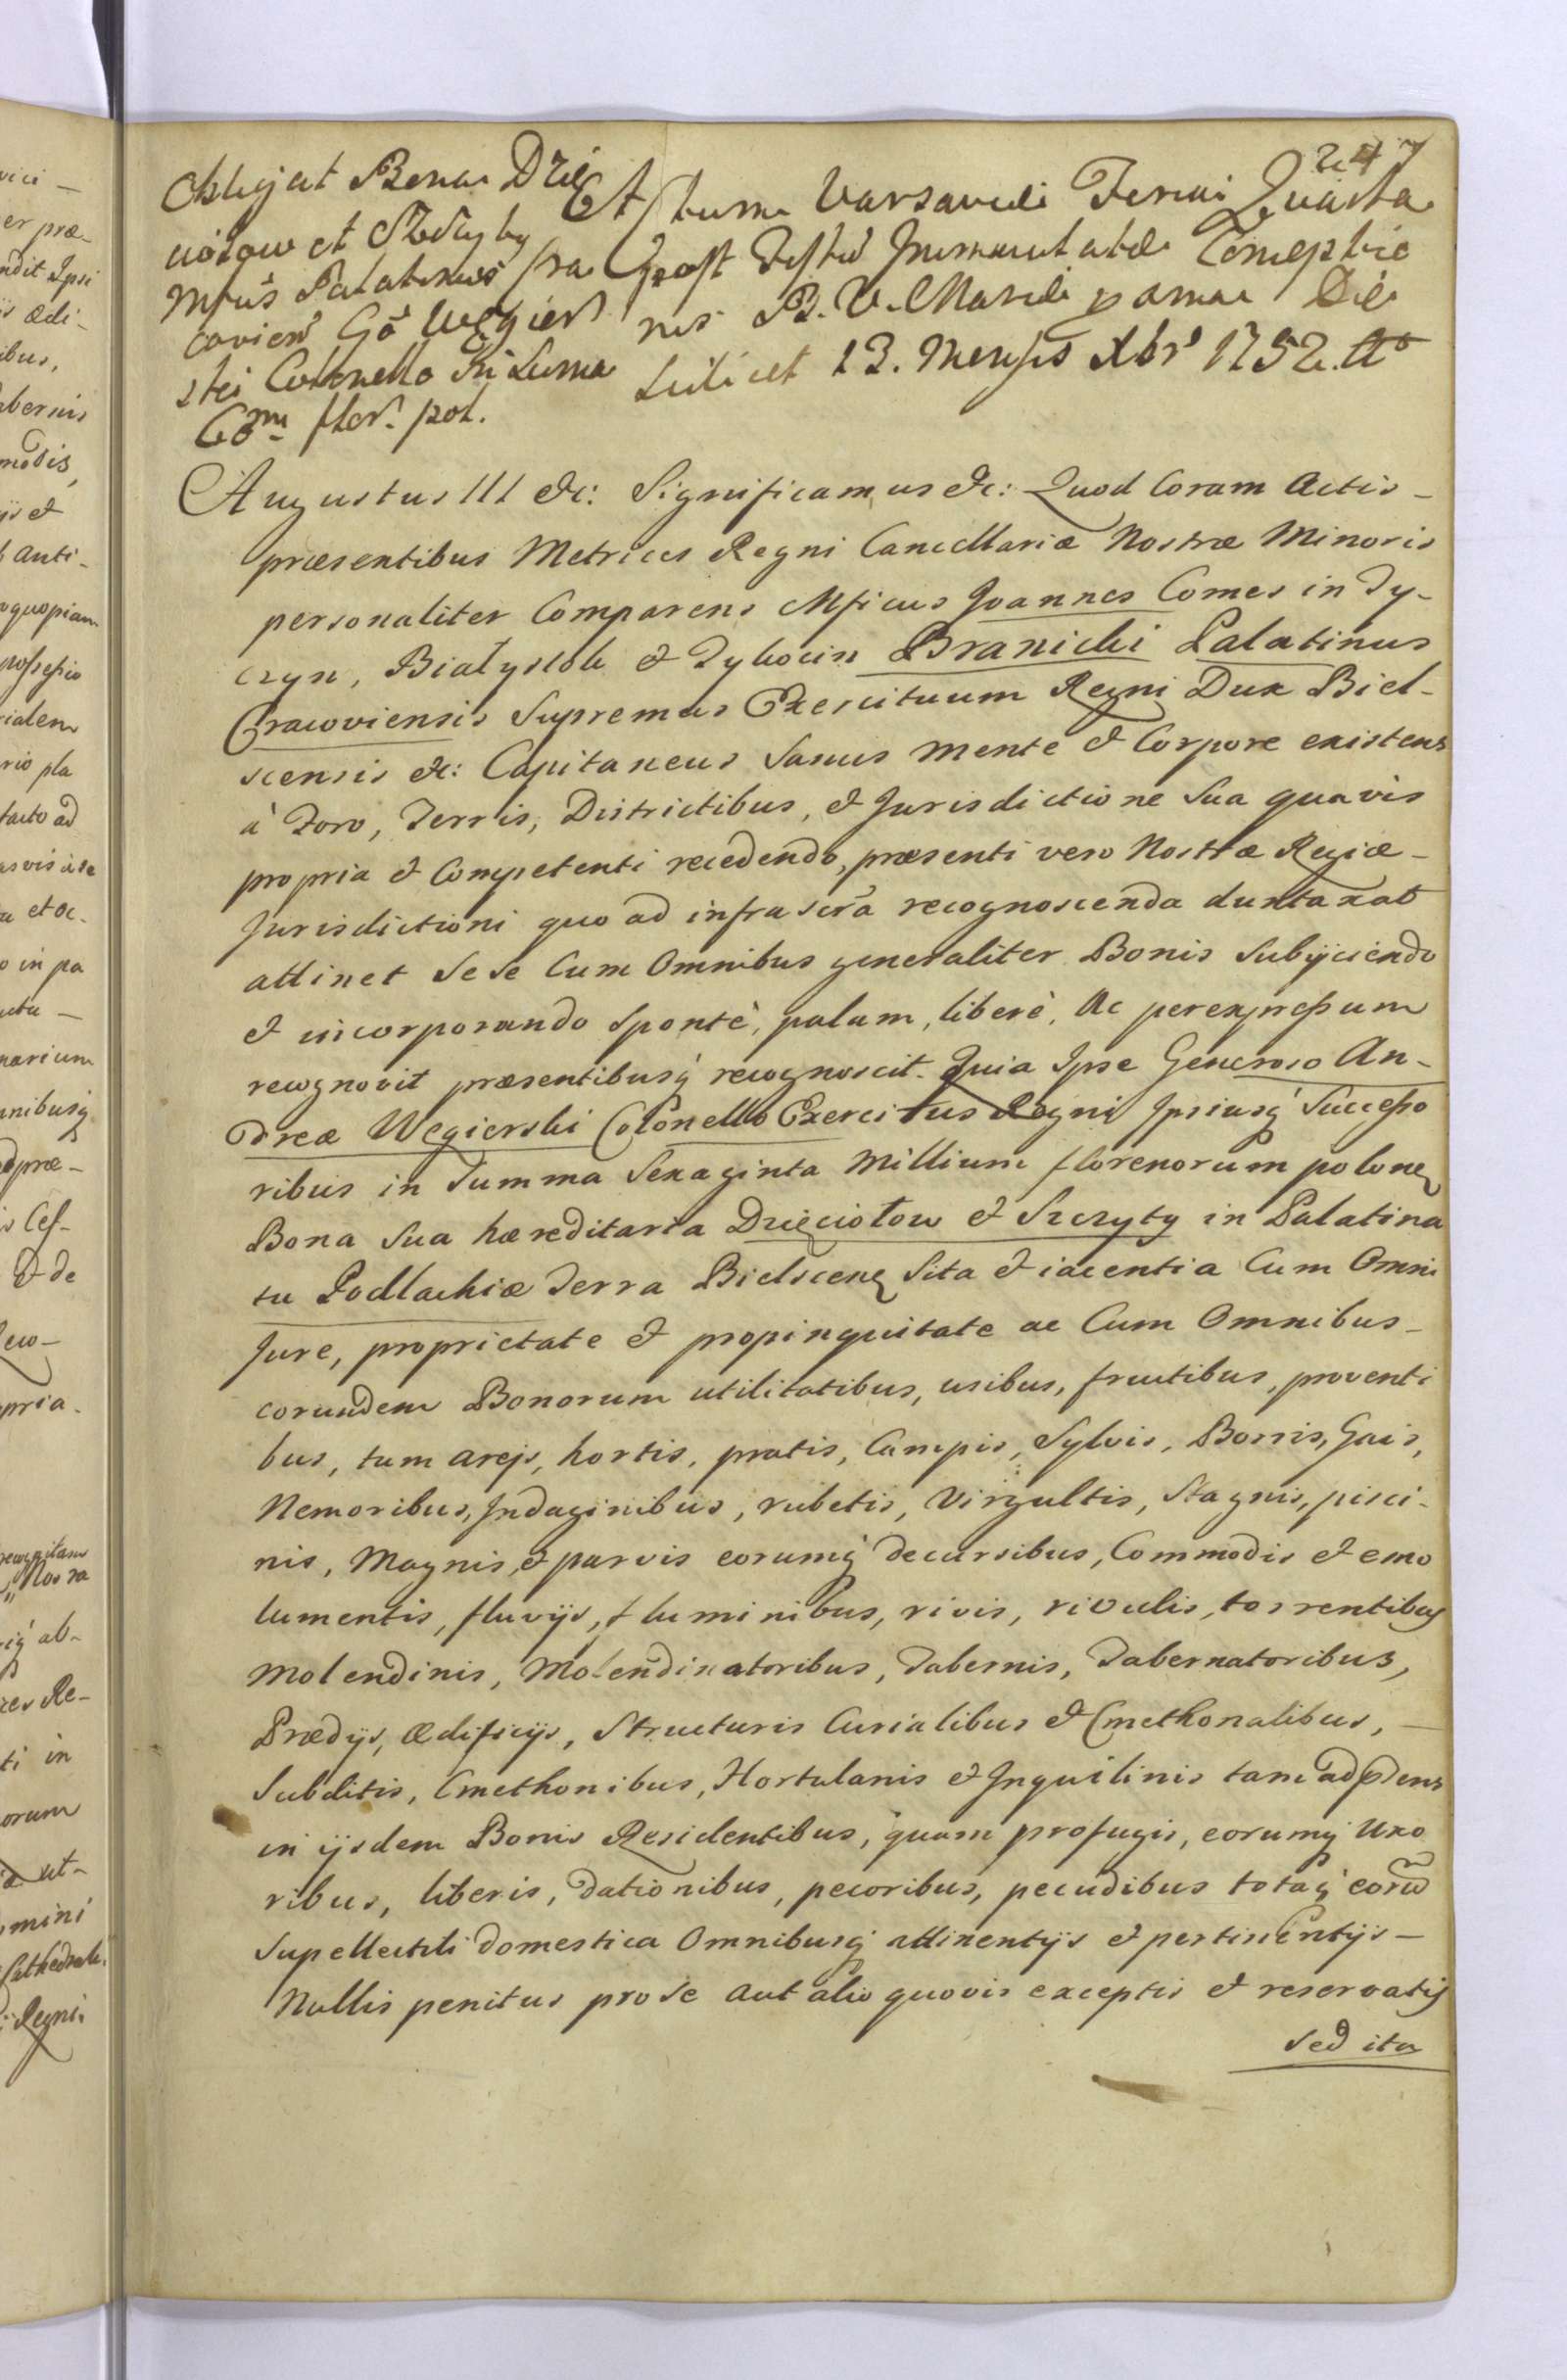 247
Obligat Bona Dzię
ciołow et Szczyty
Mfcus Palatinus Cra
covien Gō Węgier
ski Colonello in Suma
60m flor. pol.
Actum Varsaviæ Feria Quarta
post Festū Immaculatæ Conceptio
nis B. V. Mariæ proxima Die
scilicet 13. Mensis Xbr 1752. Aō
Augustus III &c: Significamus &c: Quod Coram Actis –
præsentibus Metrices Regni Cancellariæ Nostræ Minoris
personaliter Comparens Mficus Joannes Comes in Ty-
czyn, Białystok & Tykocin Branicki Palatinus
Cracoviensis Supremus Exercituum Regni Dux Biel-
scensis &c: Capitaneus Sanus mente & Corpore existens
à Foro, Terris, Districtibus, & Jurisdictione Sua quavis
propria & Competenti recedendo, præsenti vero Nostræ Regiæ –
Jurisdictioni quo ad infrascrā recognoscenda duntaxat
attinet Se se Cum Omnibus generaliter Bonis Subÿciendo
& incorporando Sponte, palam, liberè, Ac perexpressum
recognovit præsentibusq́ recognoscit. Quia Ipse Generoso An-
dreæ Węgierski Colonello Exercitus Regni Ipsiusq́ Successo
ribus in Summa Sexaginta Millium florenorum polonę
Bona Sua hæreditaria Dzięciołow & Szczyty in Palatina
tu Podlachiæ Terra Bielscenę Sita & iacentia Cum Omni
Jure, proprietate & propinquitate ac Cum Omnibus –
eorundem Bonorum utilitatibus, usibus, fructibus, proventi
bus, tum arejs, hortis, pratis, Campis, Sylvis, Borris, Gais,
Nemoribus, Indaginibus, rubetis, Virgultis, Stagnis, pisci-
nis, Magnis, & parvis eorumq́ decursibus, Commodis & emo
lumentis, fluvijs, fluminibus, rivis, rivulis, torrentibus
Molendinis, Molendinatoribus, Tabernis, Tabernatoribus,
Prædijs, ædificijs, Structuris Curialibus & Cmethonalibus, –
Subditis, Cmethonibus, Hortulanis & Inquilinis tam ad pdens
in ijsdem Bonis Residentibus, quam profugis, eorumq́ Uxo
ribus, liberis, dationibus, pecoribus, pecudibus totaq́ eorū
Supellectili domestica Omnibusq́ attinentijs & pertinentijs –
Nullis penitus pro se aut alio quovis exceptis & reservatis
Sed ita